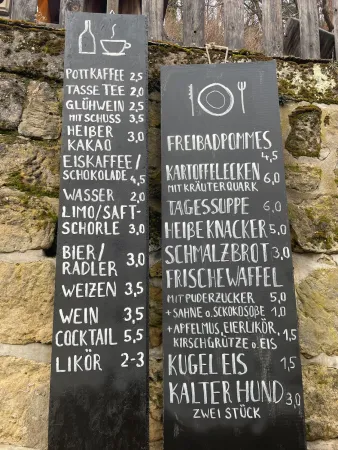 POTT KAFFEE 2,5
TASSE TEE 2,0
GLÜHWEIN 2,5
MIT SCHUSS 3,5
HEIßER
KAKAO 3,0
EISKAFFEE/
SCHOKOLADE 4,5
WASSER 2,0
LIMO/SAFT-
SCHORLE 3,0
BIER/
RADLER 3,0
WEIZEN 3,5
WEIN 3,5
COCKTAIL 5,5
LIKÖR 2-3
FREIBADPOMMES
4,5
KARTOFFELECKEN
MIT KRÄUTERQUARK 6,0
TAGESSUPPE 6,0
HEIßE KNACKER 5,0
SCHMALZBROT 3,0
FRISCHE WAFFEL
MIT PUDERZUCKER 5,0
+ SAHNE O. SCHOKOSOßE 1,0
+ APFELMUS, EIERLIKÖR,
KIRSCHGRÜTZE O. EIS 1,5
KUGEL EIS 1,5
KALTER HUND 3,0
ZWEI STÜCK